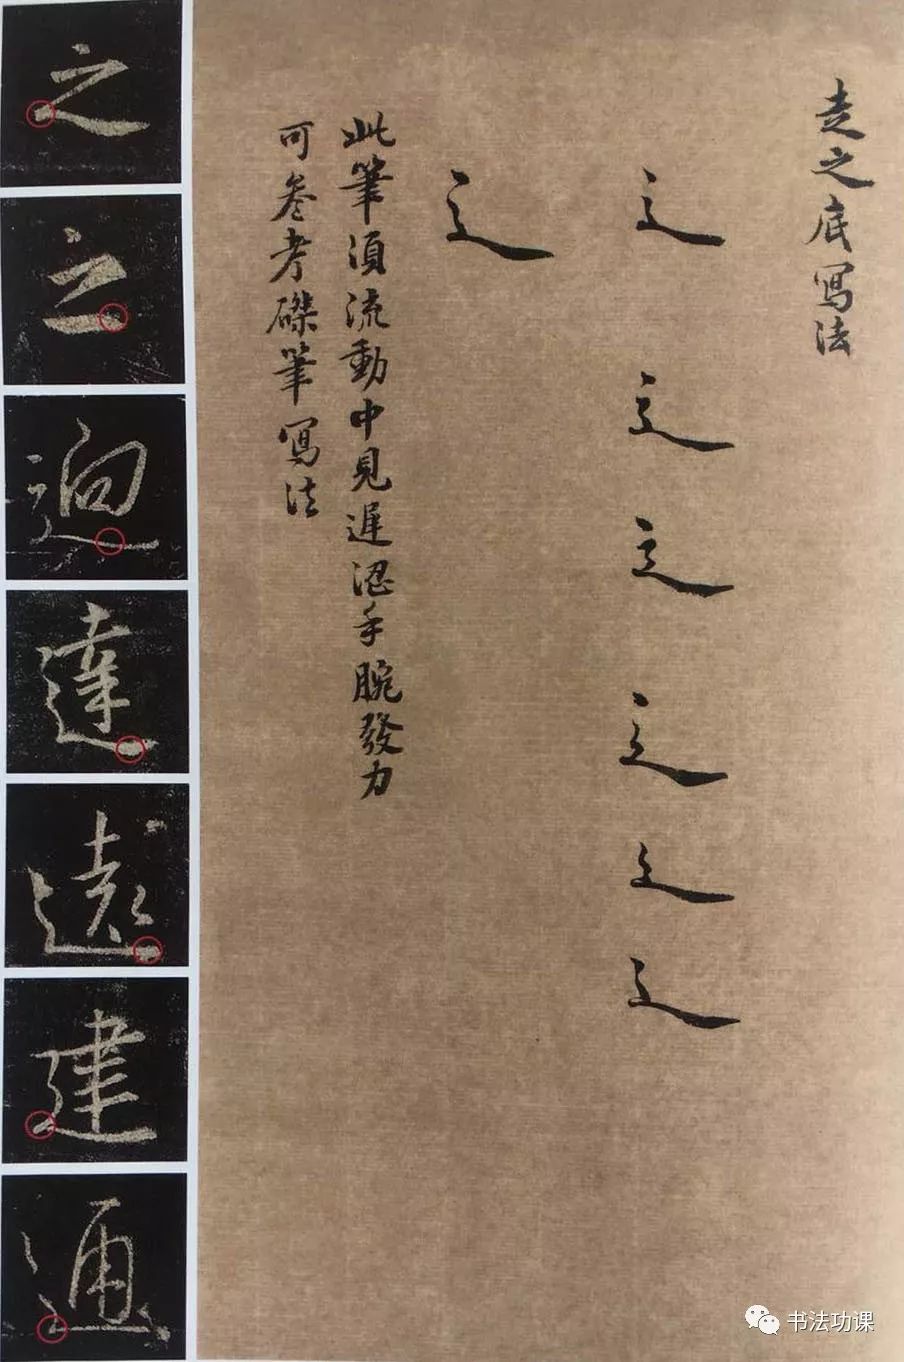 走之底寫法
此筆須流動中見遲澀手腕發力
可叅考磔筆寫法
之
之
逈
達
遠
建
通
书法功课